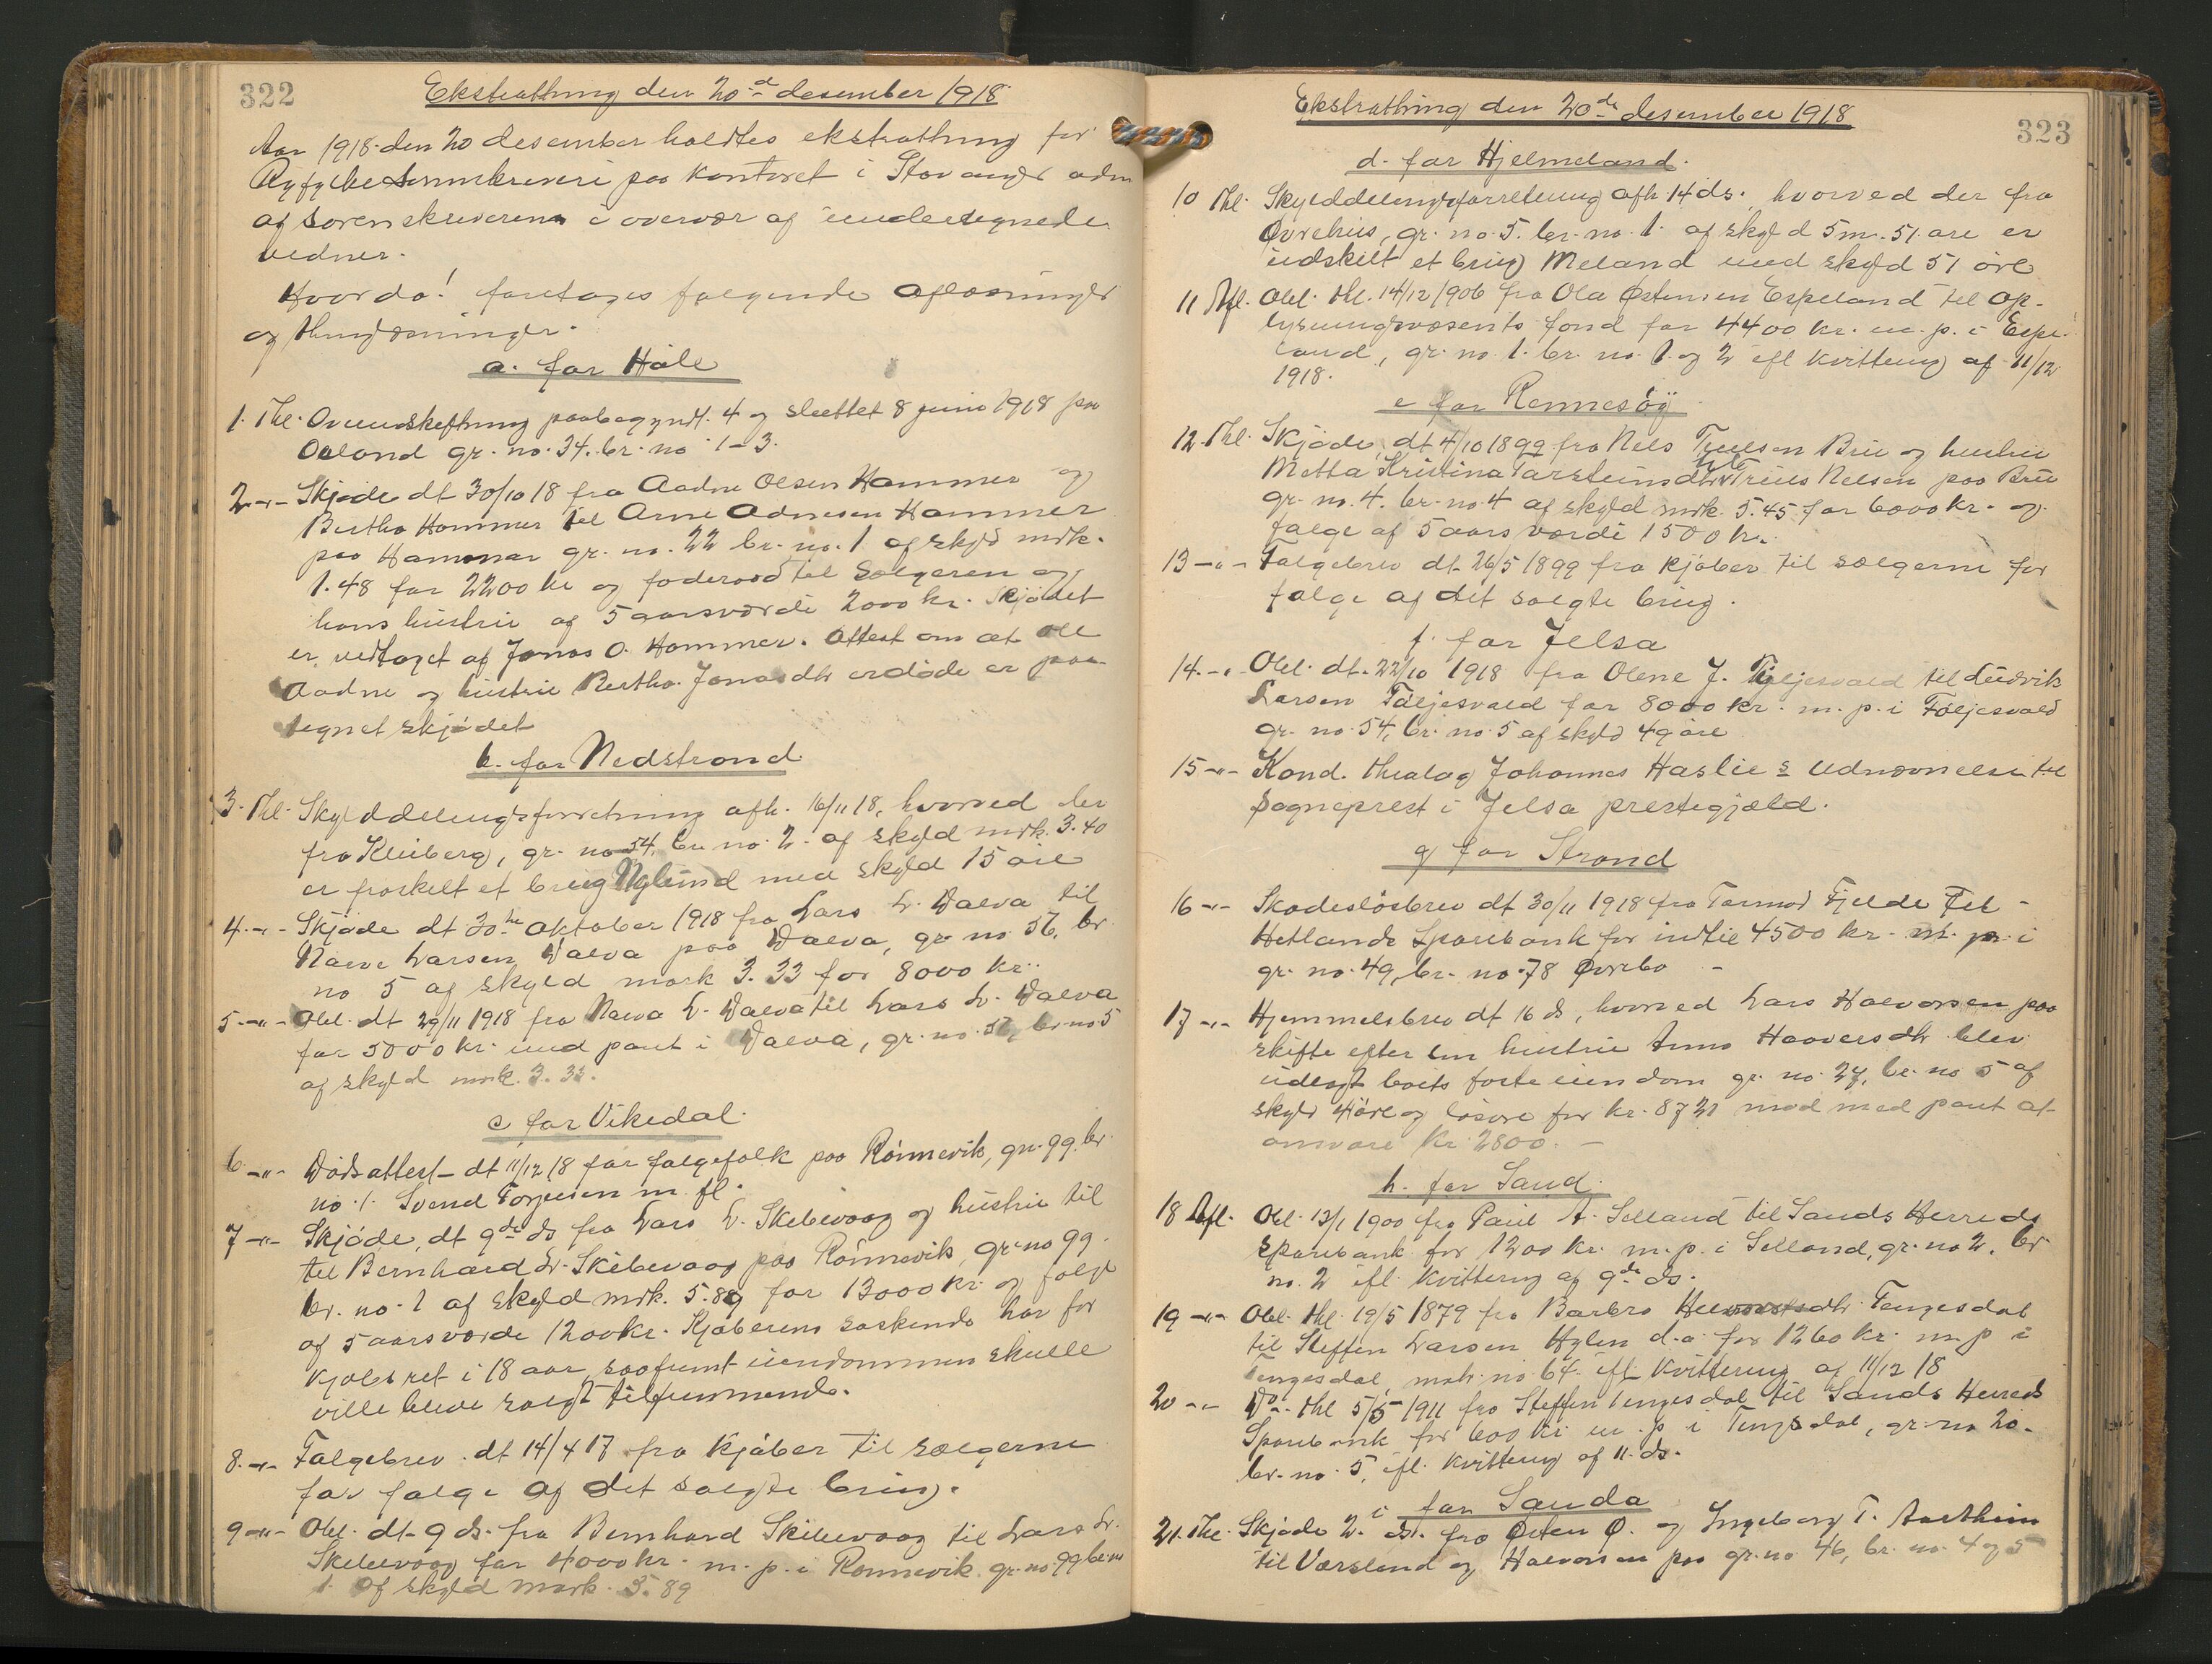 322
Ekstrathing den 20de desember 1918
Aar 1918 den 20 desember holdtes ekstrathing for
Ryfylke Sorenskriveri paa kontoret i Stavanger adm
af sorenskriveren i overvær af undertegnede
vidner.
Hvorda! foretoges følgende aflæsninger
og thinglæsninger.
a. for Håle
1. Thl. Overudskiftning paabegyndt 4 og sluttet 8 juni 1918 paa
gr. no. 34. br. no 1-3.
2 -"- Skjøde dt 30/10 18 fra Aadne Olsen Hammer og
Bertha Hammer til Arne Adnesen Hammer
paa Hammer gr. no. 22 br. no. 1 af skyld mrk.
1.48 for 2200 kr og føderaad til Sælgeren og
hans hustru af 5 aarsværdi 2000 kr. Skjødet
er vedtaget af Jonas O. Hammer. Attest om at
Aadne og hustru Bertha Jonasdtr er døde er paa-
tegnet skjødet
b. for Nedstrand
3. Thl. Skylddelingsforretning afh. 16/11 18, hvorved der
fra Kleiberg, gr. no 54, br no. 2. af skyld mrk. 3.40
er fraskilt et brug Nylund med skyld 15 øre
4. -"- Skjøde dt 30te oktober 1918 fra Lars L. Dalva til
Larsen Dalva paa Dalva, gr no. 56, br
no 5 af skyld mark 3.33 for 8000 kr..
5 -"- Obl. dt 29/11 1918 fra L. Dalva til Lars L. Dalva
for 5000 kr. med pant i Dalva, gr. no. 56, br no 5
af skyld mrk. 3.33.
c for Vikedal.
6 -"- Dødsattest dt 11/12 18 for følgefolk paa Rønnevik, gr. 99. br
no. 1. Svend Torjusen m. fl.
7 -"- Skjøde, dt 9de ds fra Lars L. Skibevaag og hustru til
til Bernhard L. Skibevaag paa Rønnevik, gr. no 99
br. no. 1 af skyld mrk. 5.89 for 13000 kr. og følge
af 5 aarsværde 1200 kr. Kjøberens søskende har for
kjøbsret i 18 aar, saafremt eiendommen skulle
ville blive solgt tilfremmende.
8. -"- Følgebrev dt 14/4 17 fra kjøber til sælgerne
for følge af det solgte brug.
9 -"- Obl. dt 9 ds. fra Bernhard Skibevaag til Lars L.
Skibevaag for 4000 kr. m. p. i Rønnevik gr. no 99 br no
1. af skyld mark. 5.89
Ekstrathing den 20de desember 1918
323
d. for Hjelmeland.
10 Thl. Skylddelingsforretning afh. 14 ds. hvorved der fra
Øvrehus, gr. no. 5. br. no. 1. af skyld 5 m. 51 øre er
udskilt et brug Meland med skyld 51 øre
11 Afl. Obl. thl. 14/12 1906 fra Ola Østensen Espeland til Op-
lysningsvæsents fond for 4400 kr. m. p. i Espe-
land, gr. no 1. br. no. 1 og 2 ifl kvittering af 11/12
1918.
e for Rennesøy
12. Thl. Skjøde, dt 4/10 1899 fra Nels Bru og hustru
Metta Kristina Tarsteinsdtr til Truls Nelsen paa Bru
gr. no. 4. br. no. 4 af skyld mrk. 5.45 for 6000 kr. og
følge af 5 aars værdi 1500 kr.
13 -"- Følgebrev dt 26/5 1899 fra kjøber til sælgerne for
følge af det solgte brug.
f. for Jelsa
14. -"- Obl. dt. 22/10 1918 fra Olene J. Føljesvold til Ludvik
Larsen Føljesvold for 8000 kr. m. p. i Føljesvold
gr. no 54, br. no 5 af skyld 49 øre
15 -"- Kand. theolog Johannes Haslie s Udnævnelse til
Sogneprest i Jelsa prestegjæld.
g for Strand
16 -"- Skadesløsbrev dt 30/11 1918 fra Tormod Fjelde til
Hetlands Sparebank for indtil 4500 kr. m. p. i
gr. no. 49, br. no. 78 Øvrebø -
17 -"- Hjemmelsbrev dt 16 ds, hvorved Lars Halvorsen paa
skifte efter sin hustru Anna Haaversdtr blev
udlagt boets faste eiendom gr. no. 27, br. no 5 af
skyld 4 øre og løsøre for kr. 8721 mod med pant at
ansvare kr. 2800. -
h. for Sand.
18 Afl. Obl. 13/1 1900 fra Paul A. Selland til Sands Herreds
Sparebank for 1200 kr. m. p. i Selland, gr. no 2. br
no. 2 ifl. kvittering af 9de ds.
19 -"- Obl. thl. 19/5 1879 fra Barbro Tengesdal
til Steffen Larsen Hylen d. a. for 1260 kr. m. p i
Tengesdal, matr. no 64. ifl kvittering af 11/12 18
20 -"- Do. thl 5/5 1911 fra Steffen Tengesdal til Sands Herreds
Sparebank for 600 kr m. p i Tengsdal, gr. no 20.
br. no. 5, ifl. kvittering af 11. ds.
i for Sauda
21. Thl. Skjøde 2. ds. fra Østen Ø. og Ingeborg T. Aartheim
til Værsland og Halvorsen paa gr. no 46, br. no. 4 og 5